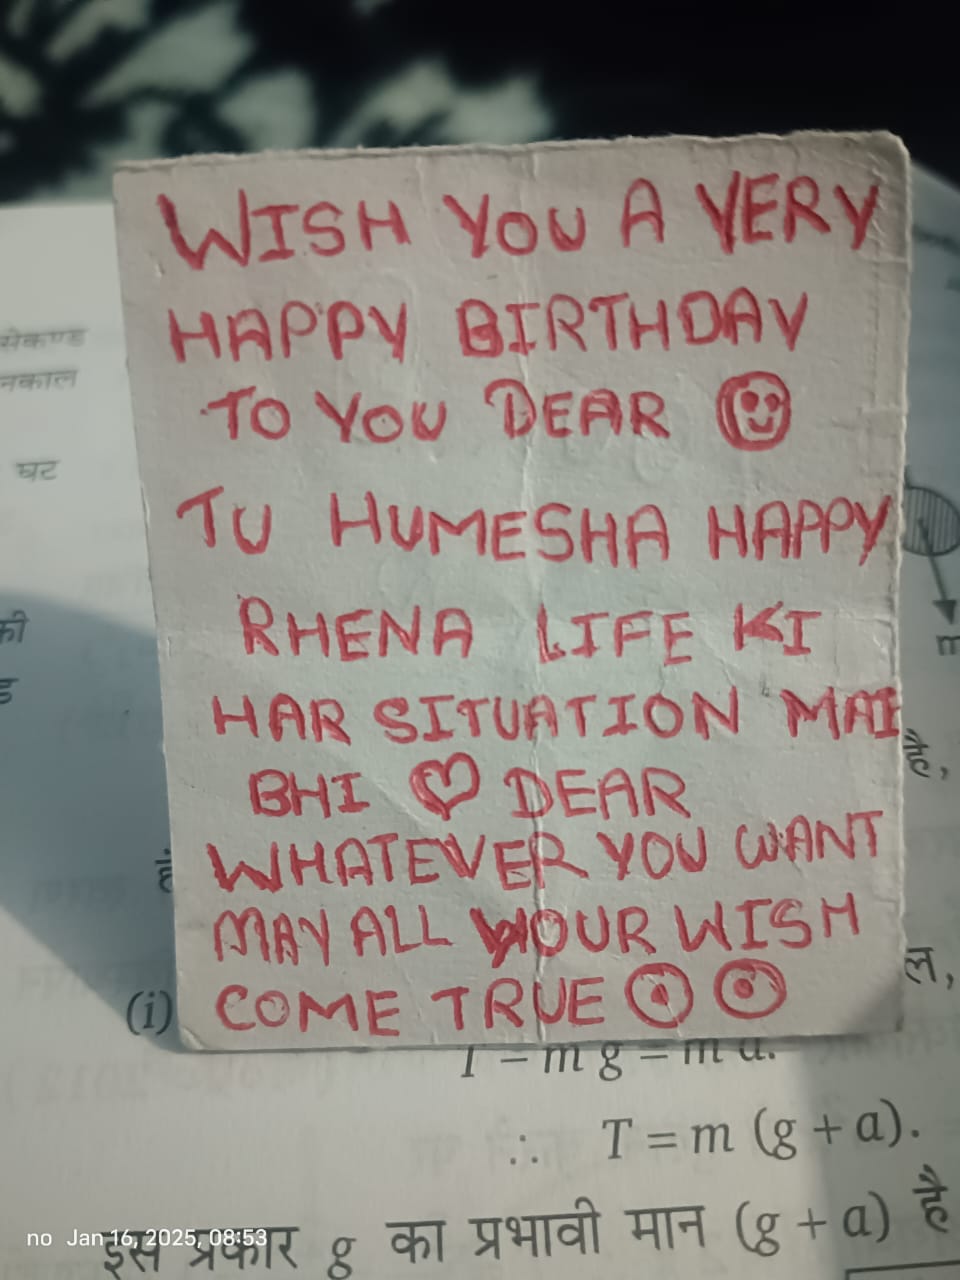 WISH YOU A VERY
HAPPY BIRTHDAY
TO YOU DEAR
TU HUMESHA HAPPY
RHENA LIFE KI
HAR SITUATION MAI
BHI ♡ DEAR
WHATEVER YOU WANT
MAY ALL YOUR WISH
COME TRUE
सेकण्ड
नकाल
घट
की
ड
m
है,
हैं
ल,
(i)
T – m g = m a.
∴ T = m (g + a).
इस प्रकार g का प्रभावी मान (g + a) है
no Jan 16, 2025, 08:53